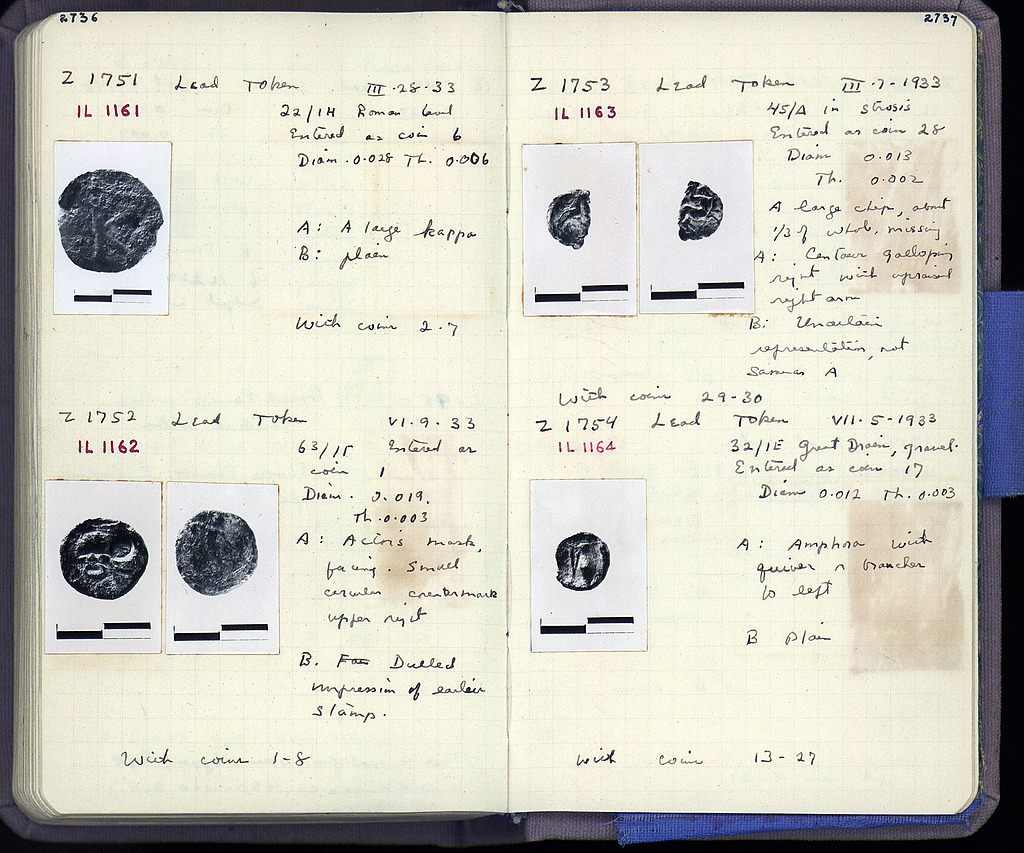 2736
Z 1751 Lead Token III·28·33
IL 1161
22/IH Roman level
Entered as coin 6
Diam. 0.028 Th. 0.006
A: A large kappa
B: plain
With coin 2-7
Z 1752 Lead Token VI·9·33
IL 1162
63/IΓ Entered as
coin 1
Diam. 0.019.
Th. 0.003
A: Actor's mask,
facing. Small
circular countermark
upper right
B. Dulled
impression of earlier
stamp.
With coins 1-8
2737
Z 1753 Lead Token III·7·1933
IL 1163
45/Δ in strosis
Entered as coin 28
Diam 0.013
Th. 0.002
A large chip, about
1/3 of whole, missing
A: Centaur galloping
right with upraised
right arm
B: Uncertain
representation, not
same as A
With coins 29-30
Z 1754 Lead Token VII·5·1933
IL 1164
32/IE Great Drain, gravel.
Entered as coin 17
Diam 0.012 Th. 0.003
A: Amphora with
quiver or branches
to left
B Plain
With coin 13-27